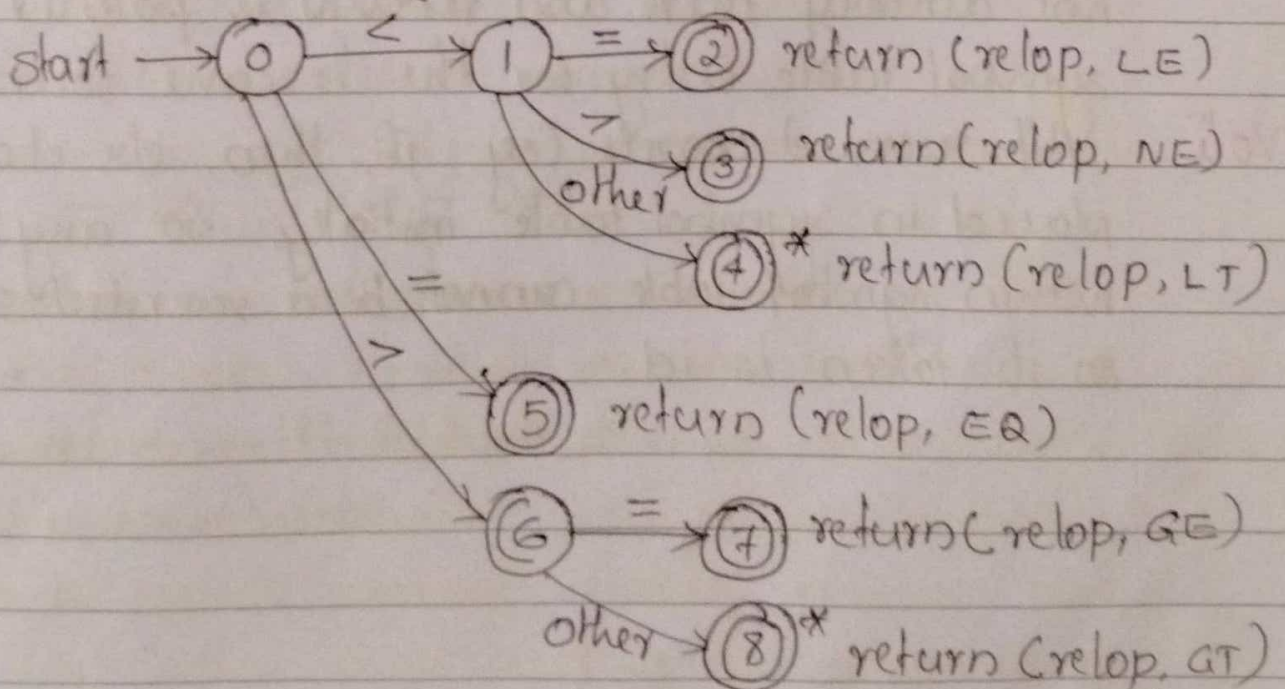 start 0 < 1 = 2 return (relop, LE)
> 3 return (relop, NE)
other 4 * return (relop, LT)
=
>
5 return (relop, EQ)
6 = 7 return (relop, GE)
other 8 * return (relop, GT)